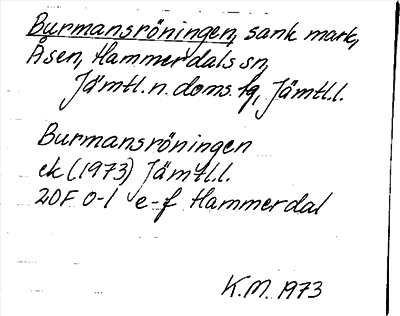 Burmansröningen, sank mark,
Åsen, Hammerdals sn,
Jämtl. n. doms. fg, Jämtl.l.
Burmansröningen
ek (1973) Jämtl.l.
20F 0-1 e-f Hammerdal
K.M. 1973